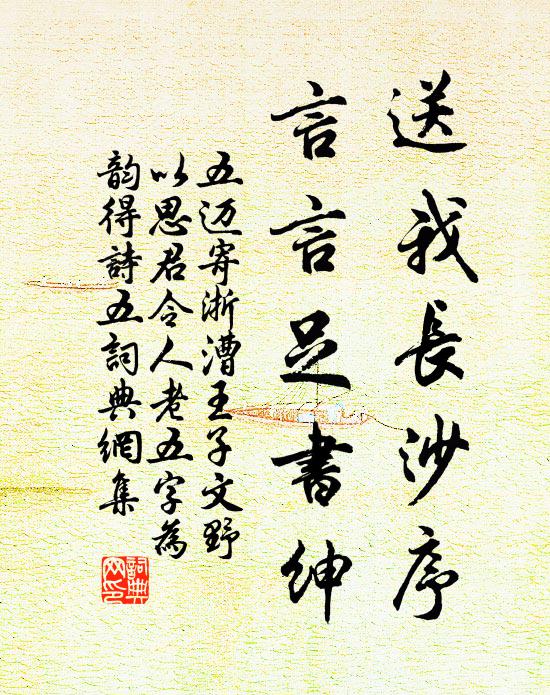 送我長沙序
言言足書紳
五迈寄浙漕王子文野
以思君令人老五字為
韵得詩五詞典網集
詞典
网印